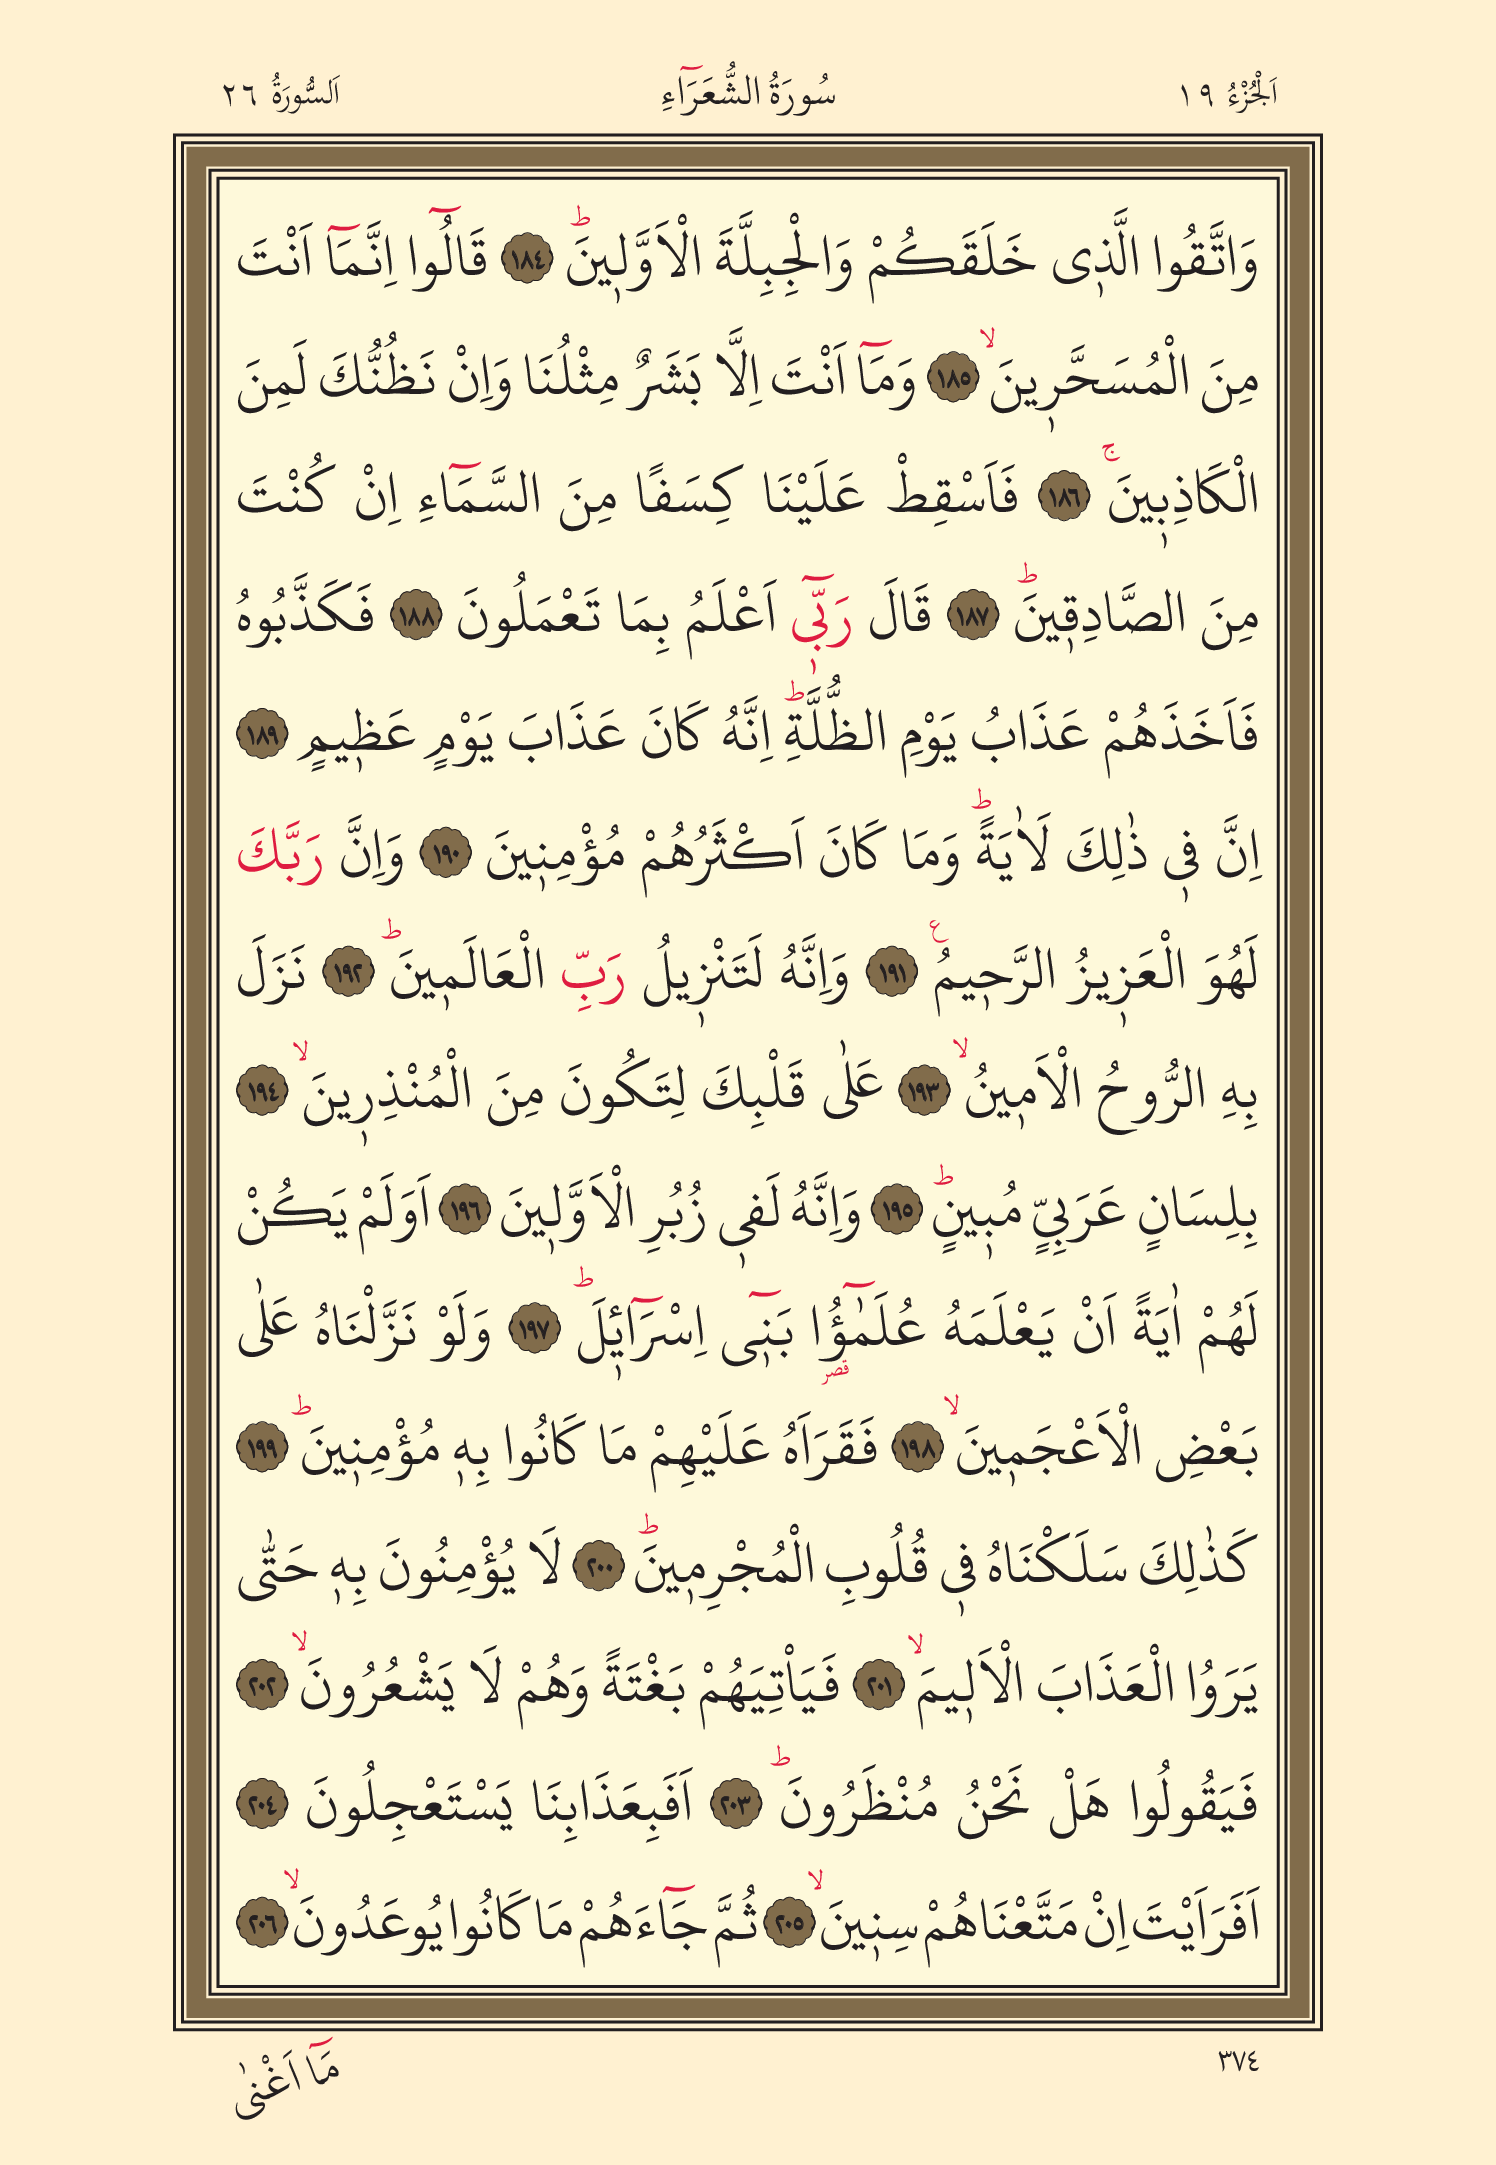 اَلْجُزْءُ ١٩
سُورَةُ الشُّعَرَٓاءِ
اَلسُّورَةُ ٢٦
وَاتَّقُوا الَّذ۪ى خَلَقَكُمْ وَالْجِبِلَّةَ الْاَوَّل۪ينَۜ ﴿١٨٤﴾ قَالُٓوا اِنَّمَٓا اَنْتَ
مِنَ الْمُسَحَّر۪ينَۙ ﴿١٨٥﴾ وَمَٓا اَنْتَ اِلَّا بَشَرٌ مِثْلُنَا وَاِنْ نَظُنُّكَ لَمِنَ
الْكَاذِب۪ينَۚ ﴿١٨٦﴾ فَاَسْقِطْ عَلَيْنَا كِسَفًا مِنَ السَّمَٓاءِ اِنْ كُنْتَ
مِنَ الصَّادِق۪ينَۜ ﴿١٨٧﴾ قَالَ رَبّ۪ٓى اَعْلَمُ بِمَا تَعْمَلُونَ ﴿١٨٨﴾ فَكَذَّبُوهُ
فَاَخَذَهُمْ عَذَابُ يَوْمِ الظُّلَّةِۜ اِنَّهُ كَانَ عَذَابَ يَوْمٍ عَظ۪يمٍ ﴿١٨٩﴾
اِنَّ ف۪ى ذٰلِكَ لَاٰيَةًۜ وَمَا كَانَ اَكْثَرُهُمْ مُؤْمِن۪ينَ ﴿١٩٠﴾ وَاِنَّ رَبَّكَ
لَهُوَ الْعَز۪يزُ الرَّح۪يمُ ع ﴿١٩١﴾ وَاِنَّهُ لَتَنْز۪يلُ رَبِّ الْعَالَم۪ينَۜ ﴿١٩٢﴾ نَزَلَ
بِهِ الرُّوحُ الْاَم۪ينُۙ ﴿١٩٣﴾ عَلٰى قَلْبِكَ لِتَكُونَ مِنَ الْمُنْذِر۪ينَۙ ﴿١٩٤﴾
بِلِسَانٍ عَرَبِىٍّ مُب۪ينٍۜ ﴿١٩٥﴾ وَاِنَّهُ لَف۪ى زُبُرِ الْاَوَّل۪ينَ ﴿١٩٦﴾ اَوَلَمْ يَكُنْ
لَهُمْ اٰيَةً اَنْ يَعْلَمَهُ عُلَمٰٓؤُا قصر بَن۪ٓى اِسْرَٓائ۪لَۜ ﴿١٩٧﴾ وَلَوْ نَزَّلْنَاهُ عَلٰى
بَعْضِ الْاَعْجَم۪ينَۙ ﴿١٩٨﴾ فَقَرَاَهُ عَلَيْهِمْ مَا كَانُوا بِه۪ مُؤْمِن۪ينَۜ ﴿١٩٩﴾
كَذٰلِكَ سَلَكْنَاهُ ف۪ى قُلُوبِ الْمُجْرِم۪ينَۜ ﴿٢٠٠﴾ لَا يُؤْمِنُونَ بِه۪ حَتّٰى
يَرَوُا الْعَذَابَ الْاَل۪يمَۙ ﴿٢٠١﴾ فَيَاْتِيَهُمْ بَغْتَةً وَهُمْ لَا يَشْعُرُونَۙ ﴿٢٠٢﴾
فَيَقُولُوا هَلْ نَحْنُ مُنْظَرُونَۜ ﴿٢٠٣﴾ اَفَبِعَذَابِنَا يَسْتَعْجِلُونَ ﴿٢٠٤﴾
اَفَرَاَيْتَ اِنْ مَتَّعْنَاهُمْ سِن۪ينَۙ ﴿٢٠٥﴾ ثُمَّ جَٓاءَهُمْ مَا كَانُوا يُوعَدُونَۙ ﴿٢٠٦﴾
٣٧٤
مَٓا اَغْنٰى